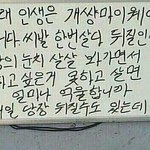 래 인생은 개쌍마이웨이
니다. 씨발 한번살다 뒤질인
남의 눈치 살살 봐가면서
하고 싶은거 못하고 살면
얼마나 억울합니까
내일 당장 뒤질수도 있는데